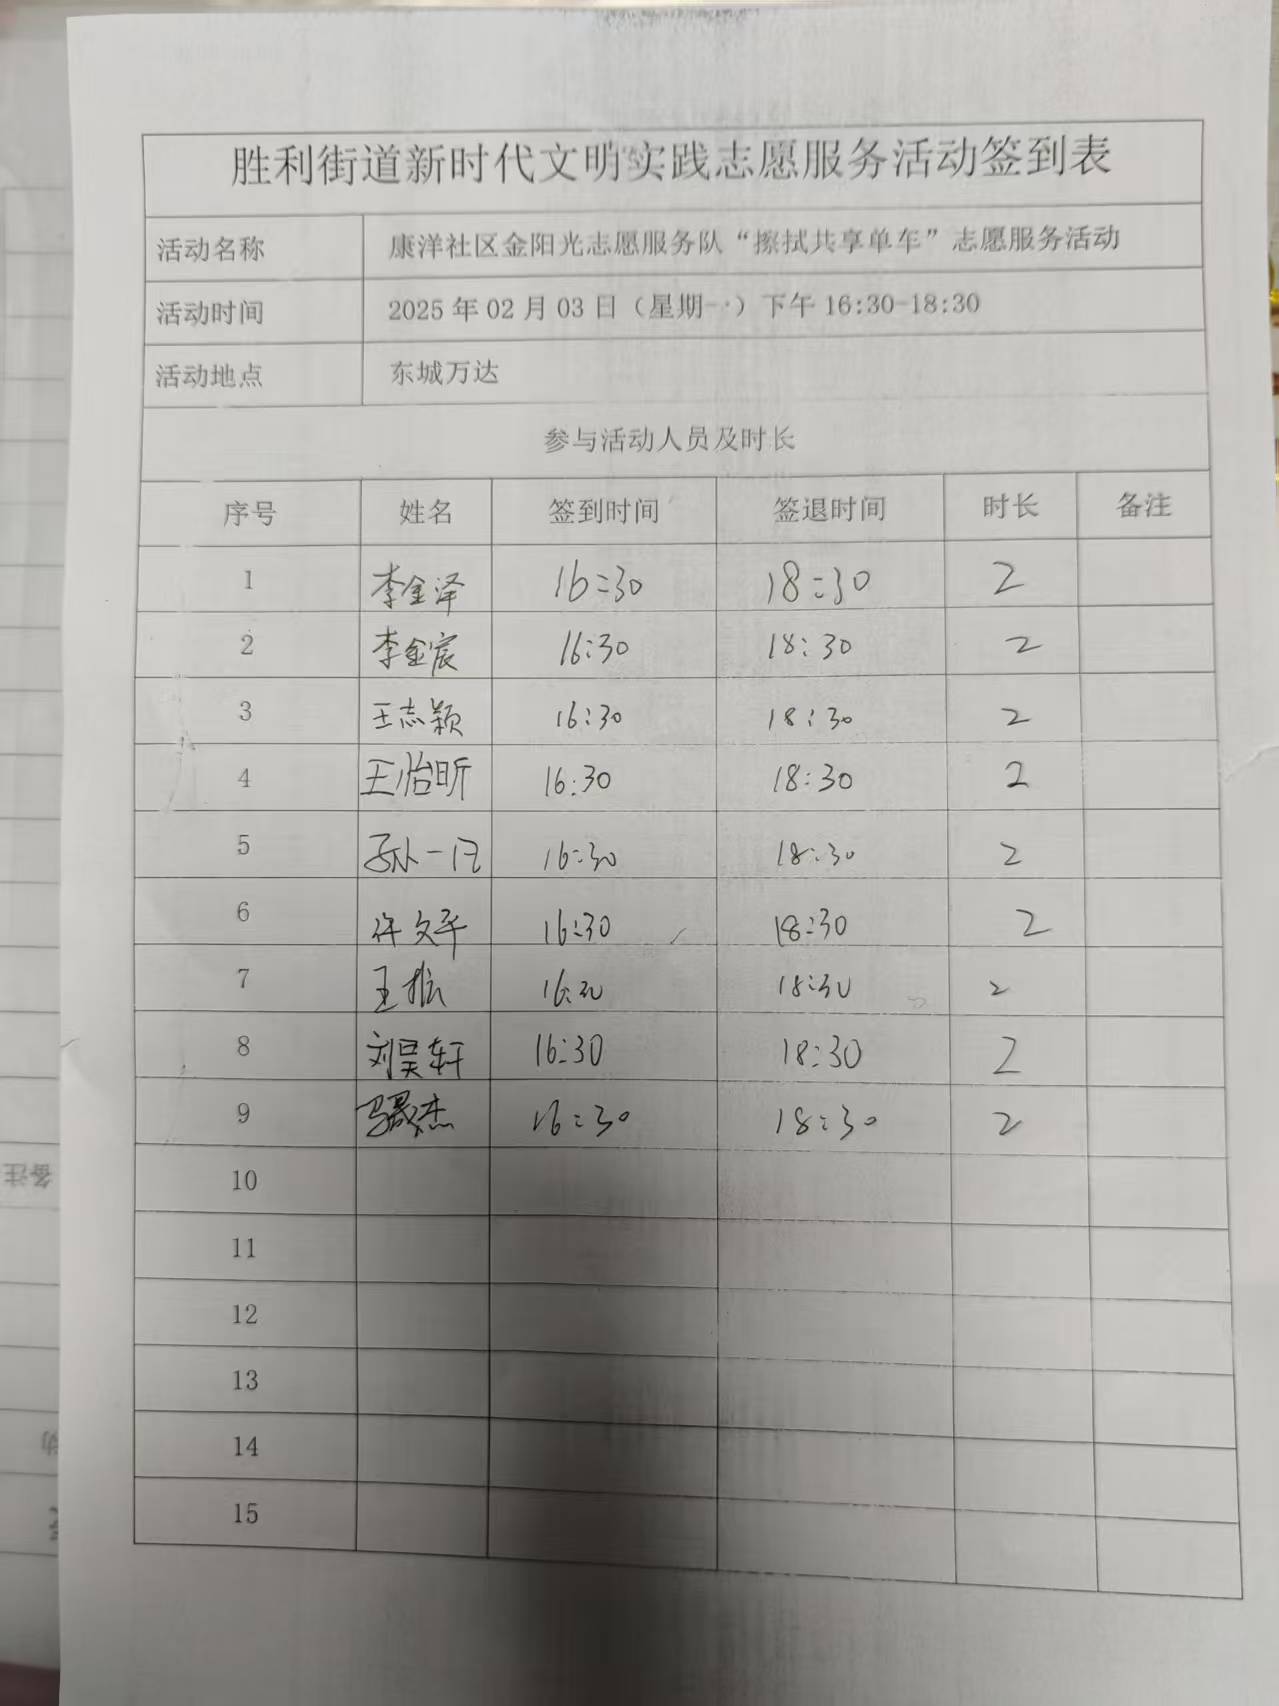 胜利街道新时代文明实践志愿服务活动签到表
活动名称 康洋社区金阳光志愿服务队“擦拭共享单车”志愿服务活动
活动时间 2025年02月03日（星期一）下午16:30-18:30
活动地点 东城万达
参与活动人员及时长
序号 姓名 签到时间 签退时间 时长 备注
1 李金泽 16:30 18:30 2
2 李金宸 16:30 18:30 2
3 王志颖 16:30 18:30 2
4 王怡昕 16:30 18:30 2
5 孙一 16:30 18:30 2
6 许文 16:30 18:30 2
7 王 16:30 18:30 2
8 刘昊轩 16:30 18:30 2
9 马晟杰 16:30 18:30 2
10
11
12
13
14
15
备注